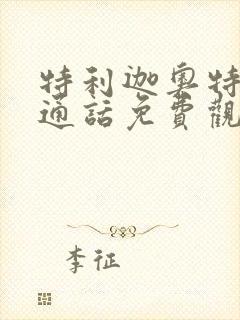 特利迦奧特
通話免費觀
李征